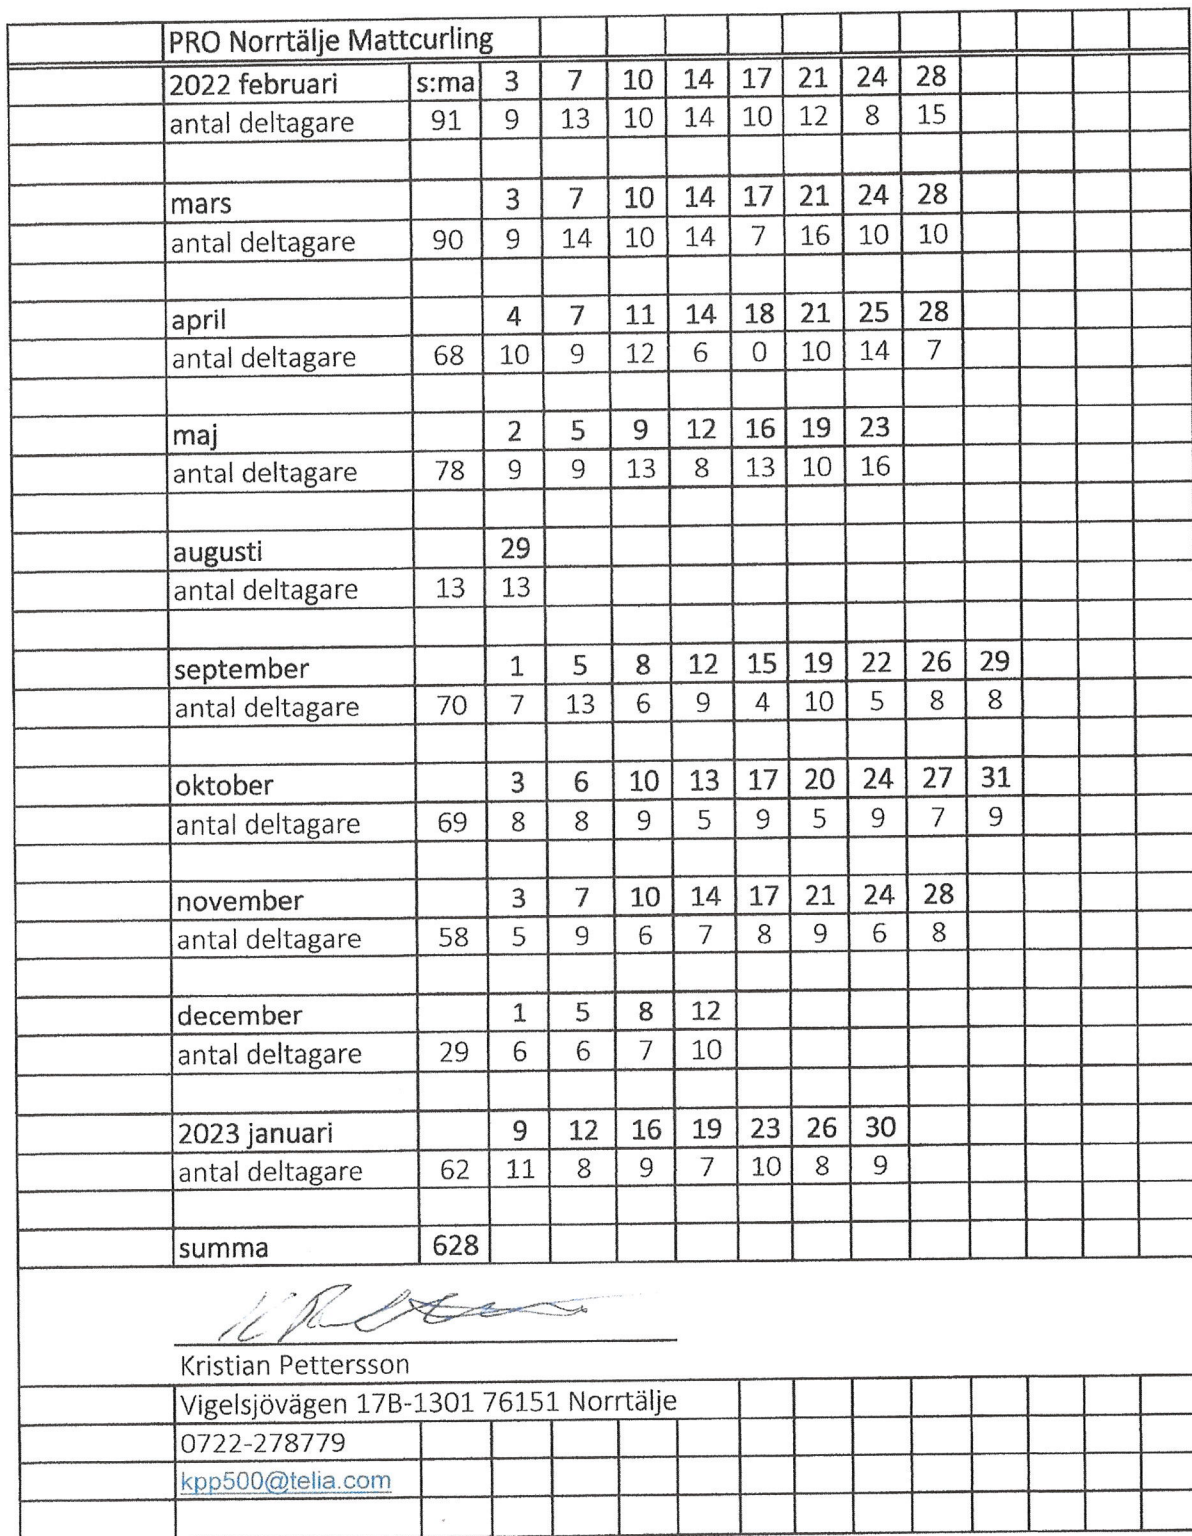 PRO Norrtälje Mattcurling
2022 februari s:ma 3 7 10 14 17 21 24 28
antal deltagare 91 9 13 10 14 10 12 8 15
mars 3 7 10 14 17 21 24 28
antal deltagare 90 9 14 10 14 7 16 10 10
april 4 7 11 14 18 21 25 28
antal deltagare 68 10 9 12 6 0 10 14 7
maj 2 5 9 12 16 19 23
antal deltagare 78 9 9 13 8 13 10 16
augusti 29
antal deltagare 13 13
september 1 5 8 12 15 19 22 26 29
antal deltagare 70 7 13 6 9 4 10 5 8 8
oktober 3 6 10 13 17 20 24 27 31
antal deltagare 69 8 8 9 5 9 5 9 7 9
november 3 7 10 14 17 21 24 28
antal deltagare 58 5 9 6 7 8 9 6 8
december 1 5 8 12
antal deltagare 29 6 6 7 10
2023 januari 9 12 16 19 23 26 30
antal deltagare 62 11 8 9 7 10 8 9
summa 628
Kristian Pettersson
Vigelsjövägen 17B-1301 76151 Norrtälje
0722-278779
kpp500@telia.com